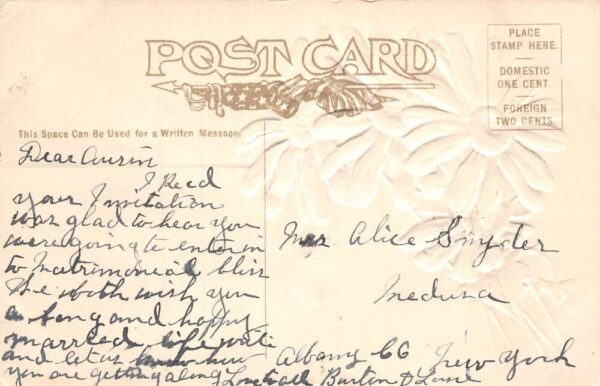 POST CARD
PLACE
STAMP HERE.
DOMESTIC
ONE CENT.
FOREIGN
TWO CENTS.
This Space Can Be Used for a Written Message.
Dear
I Recd
your Invitation
was glad to hear you
were going to enter in
to Matrimonial bliss
We both wish you
a long and happy
married life write
and let us know how
you are getting along
Love to all Burton D
Mrs Alice Snyder
Medusa
Albany Co New York